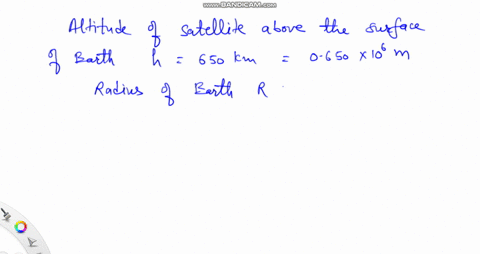 WWW.BANDICAM.COM
Altitude of satellite above the surface
of Earth h = 650 km = 0.650 × 10⁶ m
Radius of Earth R